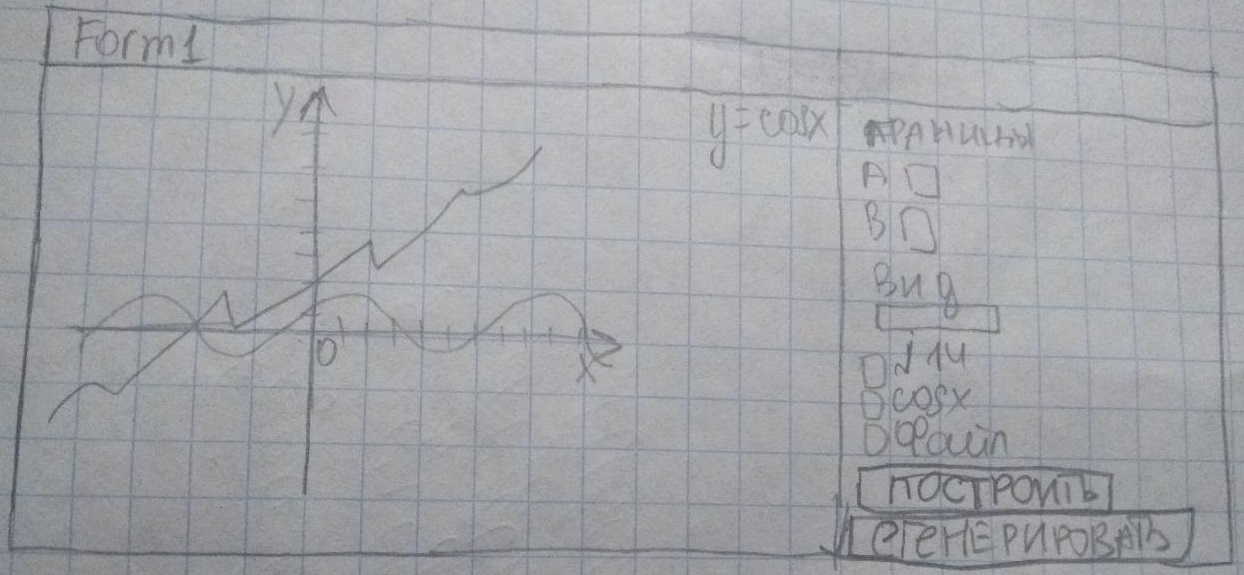 Form1
y
y=cosx
ГРАНИЦЫ
A
B
Вид
0
x
cosx
Файл
ПОСТРОИТЬ
СГЕНЕРИРОВАТЬ